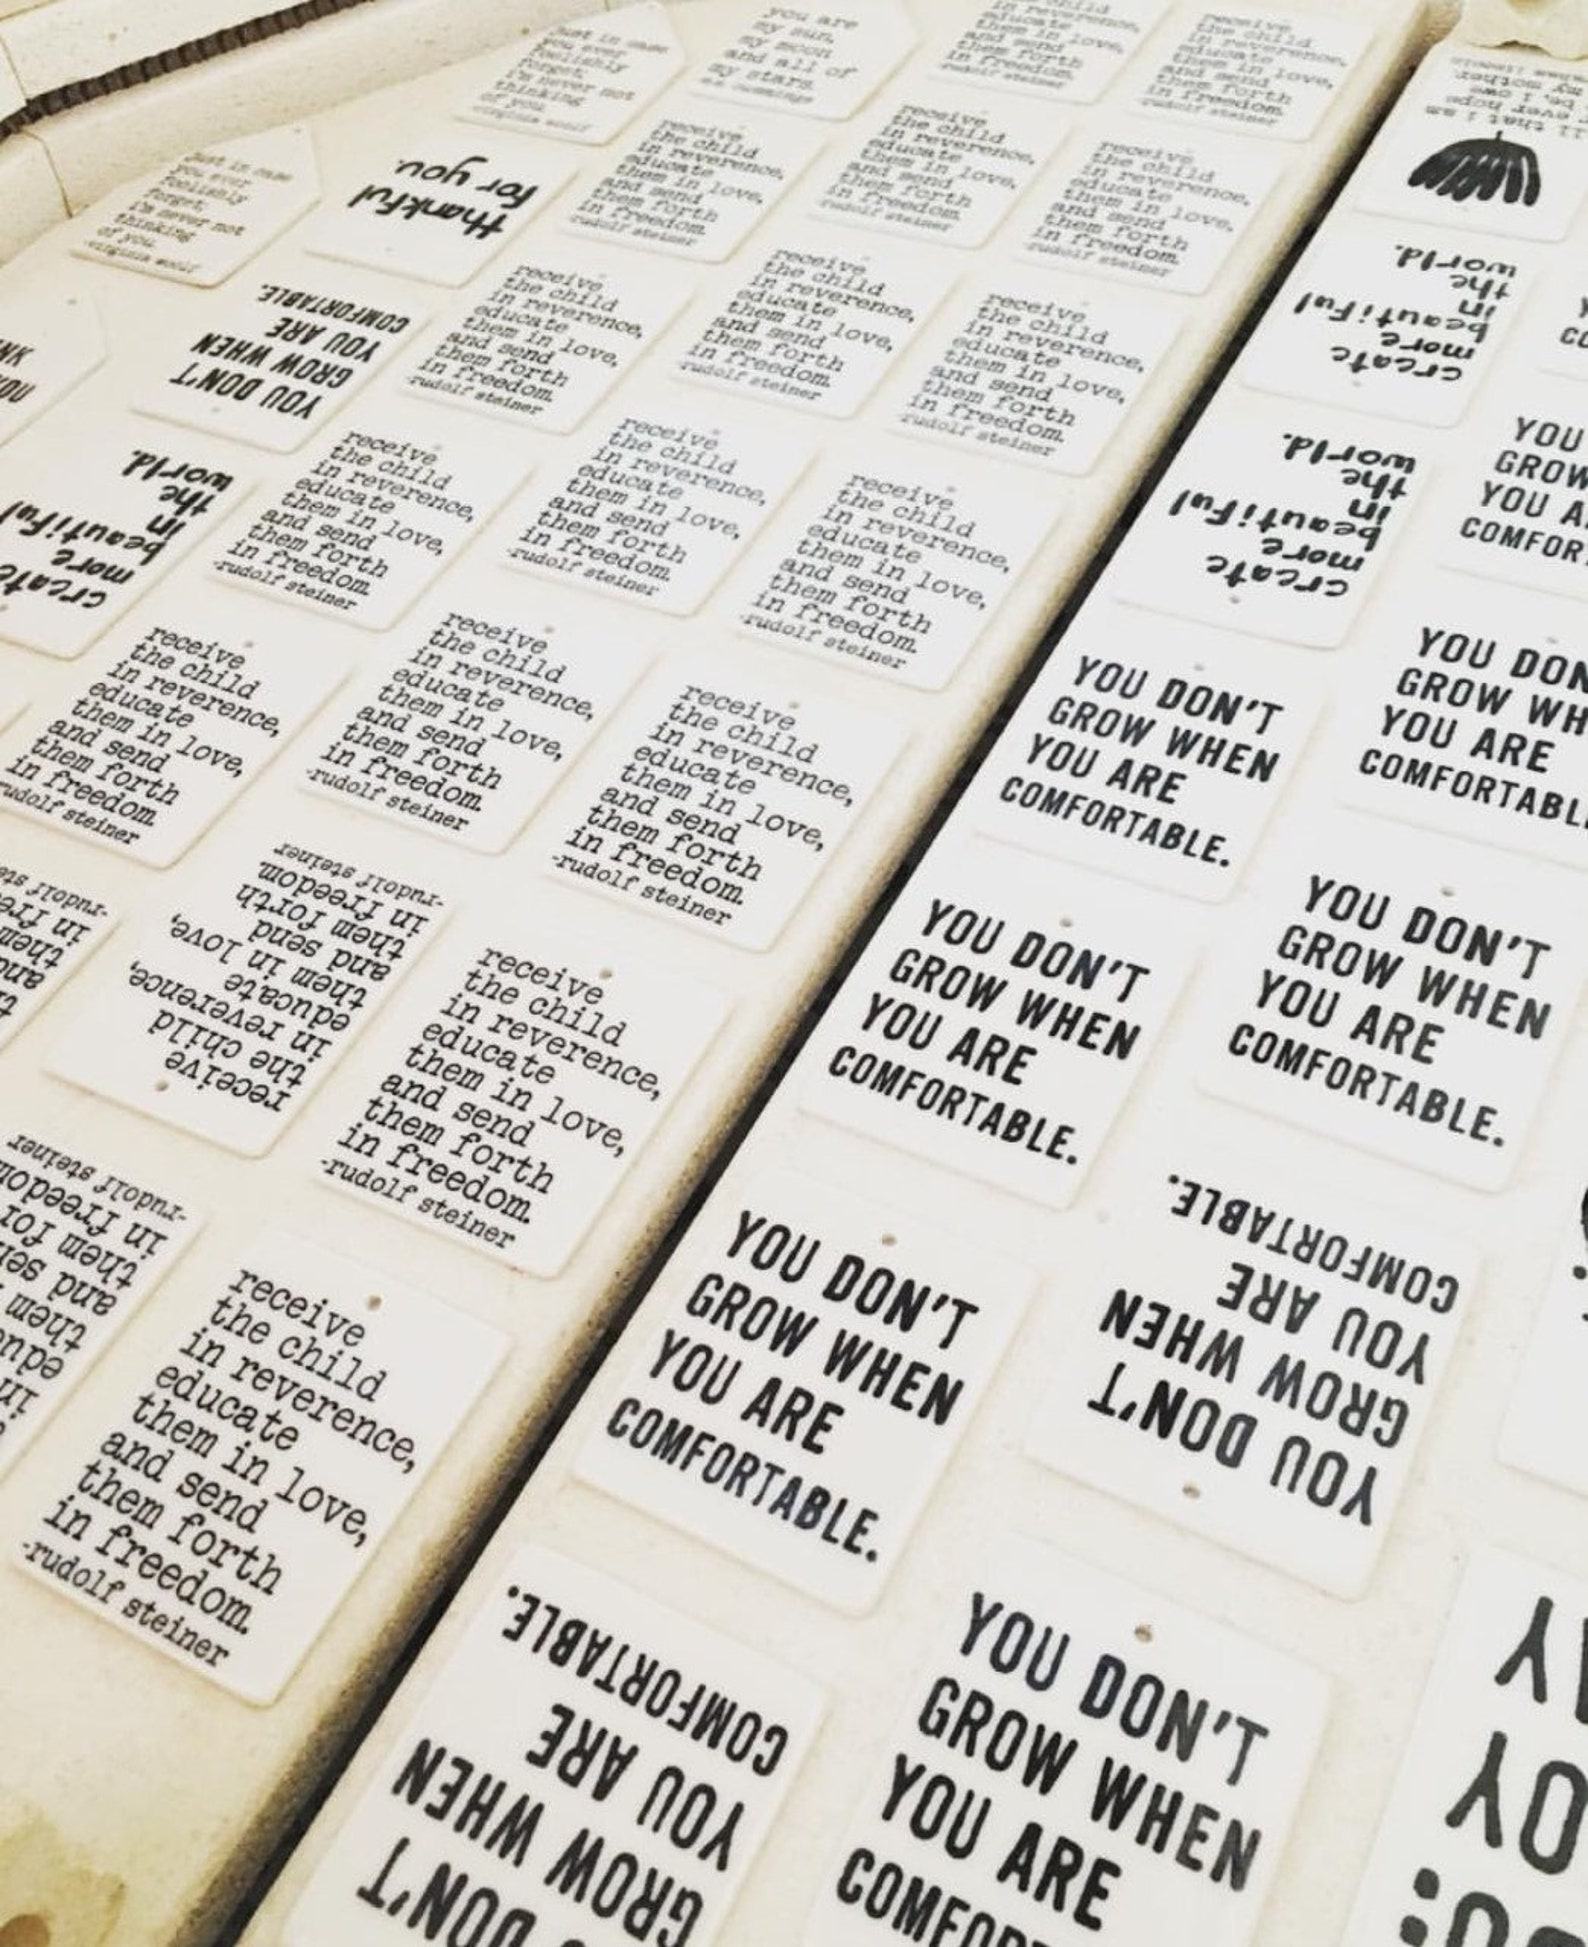 just in case
you ever
foolishly
forget,
i'm never not
thinking
of you.
-virginia woolf
you are
my sun,
my moon
and all of
my stars.
the child
in reverence,
educate
them in love,
and send
them forth
in freedom.
-rudolf steiner
receive
the child
in reverence,
educate
them in love,
and send
them forth
in freedom.
-rudolf steiner
just in case
you ever
foolishly
forget,
i'm never not
thinking
of you.
-virginia woolf
thankful
for you.
receive
the child
in reverence,
educate
them in love,
and send
them forth
in freedom.
-rudolf steiner
receive
the child
in reverence,
educate
them in love,
and send
them forth
in freedom.
-rudolf steiner
receive
the child
in reverence,
educate
them in love,
and send
them forth
in freedom.
-rudolf steiner
YOU DON'T
GROW WHEN
YOU ARE
COMFORTABLE.
receive
the child
in reverence,
educate
them in love,
and send
them forth
in freedom.
-rudolf steiner
receive
the child
in reverence,
educate
them in love,
and send
them forth
in freedom.
-rudolf steiner
receive
the child
in reverence,
educate
them in love,
and send
them forth
in freedom.
-rudolf steiner
create
more
beautiful
in
the
world.
receive
the child
in reverence,
educate
them in love,
and send
them forth
in freedom.
-rudolf steiner
receive
the child
in reverence,
educate
them in love,
and send
them forth
in freedom.
-rudolf steiner
receive
the child
in reverence,
educate
them in love,
and send
them forth
in freedom.
-rudolf steiner
receive
the child
in reverence,
educate
them in love,
and send
them forth
in freedom.
-rudolf steiner
receive
the child
in reverence,
educate
them in love,
and send
them forth
in freedom.
-rudolf steiner
receive
the child
in reverence,
educate
them in love,
and send
them forth
in freedom.
-rudolf steiner
receive
the child
in reverence,
educate
them in love,
and send
them forth
in freedom.
-rudolf steiner
receive
the child
in reverence,
educate
them in love,
and send
them forth
in freedom.
-rudolf steiner
them
and sen
them for
in freedom
-rudolf steiner
receive
the child
in reverence,
educate
them in love,
and send
them forth
in freedom.
-rudolf steiner
all that i am
ever hope
be, i owe
my mother
create
more
beautiful
in
the
world.
create
more
beautiful
in
the
world.
YOU
GROW
YOU A
COMFOR
YOU DON'T
GROW WHEN
YOU ARE
COMFORTABLE.
YOU DON
GROW WH
YOU ARE
COMFORTABL
YOU DON'T
GROW WHEN
YOU ARE
COMFORTABLE.
YOU DON'T
GROW WHEN
YOU ARE
COMFORTABLE.
YOU DON'T
GROW WHEN
YOU ARE
COMFORTABLE.
YOU DON'T
GROW WHEN
YOU ARE
COMFORTABLE.
DON'T
GROW WHEN
YOU ARE
COMFORTABLE.
YOU DON'T
GROW WHEN
YOU ARE